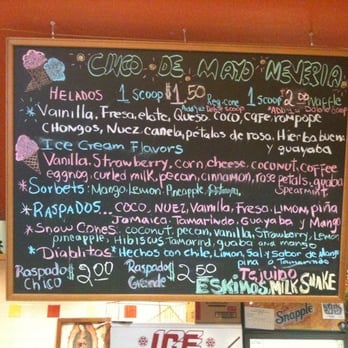 CINCO DE MAYO NEVERIA
HELADOS 1 SCOOP $1.50 Reg.cone 1 scoop $2.00 Waffle
Vainilla, Fresa, elote, Queso, COCO, cafe, rompope
Chongos, Nuez, canela, pétalos de rosa, Hierba buena
y guayaba
Ice Cream Flavors
Vanilla, Strawberry, corn, cheese, coconut, coffee
eggnog, curled milk, pecan, cinnamon, rose petals, guaba
*Sorbets: Mango, Lemon, Pineapple, Spearmint
*RASPADOS... COCO, NUEZ, Vainilla, Fresa, Limon, piña
Jamaica, Tamarindo, Guayaba y Mango
*Snow Cones: coconut, pecan, vanilla, Strawberry, Lemon
pineapple, Hibiscus, Tamarind, guaba and mango
*Diablitos* Hechos con chile, Limon, Sal y Sabor de Mango
piña o Tamarindo
Raspado Chico $2.00 Raspado Grande $2.50 Tejuino
ESKIMOS, MILK SHAKE
ICE
Snapple